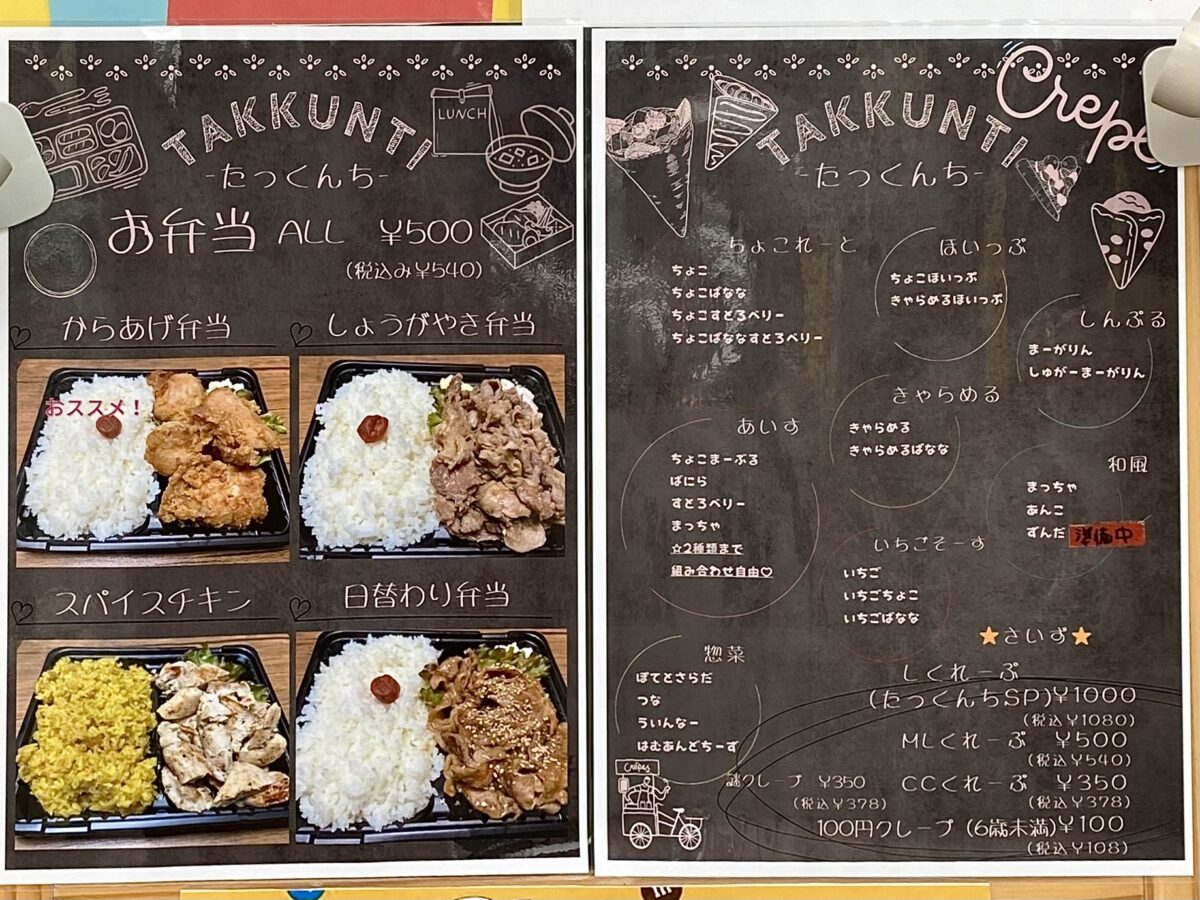 LUNCH
TAKKUNTI
-たっくんち-
お弁当 ALL ¥500
(税込み¥540)
からあげ弁当
しょうがやき弁当
おススメ！
スパイスチキン
日替わり弁当
Crepe
TAKKUNTI
-たっくんち-
ちょこれーと
ちょこ
ちょこばなな
ちょこすとろべりー
ちょこばななすとろべりー
ほいっぷ
ちょこほいっぷ
きゃらめるほいっぷ
しんぷる
まーがりん
しゅがーまーがりん
きゃらめる
きゃらめる
きゃらめるばなな
あいす
ちょこまーぶる
ばにら
すとろべりー
まっちゃ
☆2種類まで
組み合わせ自由♡
和風
まっちゃ
あんこ
ずんだ 準備中
いちごそーす
いちご
いちごちょこ
いちごばなな
惣菜
ぽてとさらだ
つな
ういんなー
はむあんどちーず
Crepes
★さいず★
Lくれーぷ
(たっくんちSP)¥1000
(税込¥1080)
MLくれーぷ ¥500
(税込¥540)
謎クレープ ¥350
(税込¥378)
CCくれーぷ ¥350
(税込¥378)
100円クレープ (6歳未満)¥100
(税込¥108)